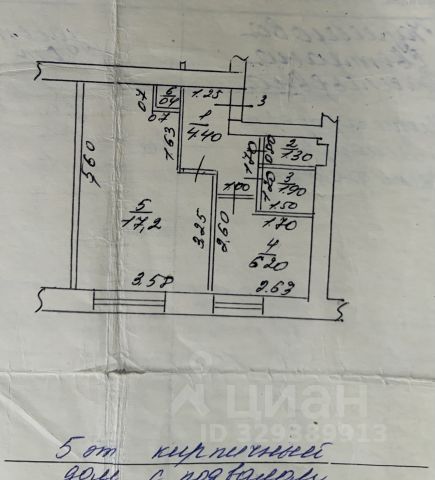 6
0,4
0,7
0,7
1.25
3
1
4.40
1.63
5.60
5
17,2
3.25
3.58
2
1.30
0.90
1.78
3
1.90
1.20
1.50
1.00
1.70
2.60
4
6.20
2.63
циан
ID 329839913
5 эт кирпичный
дом с подвалом